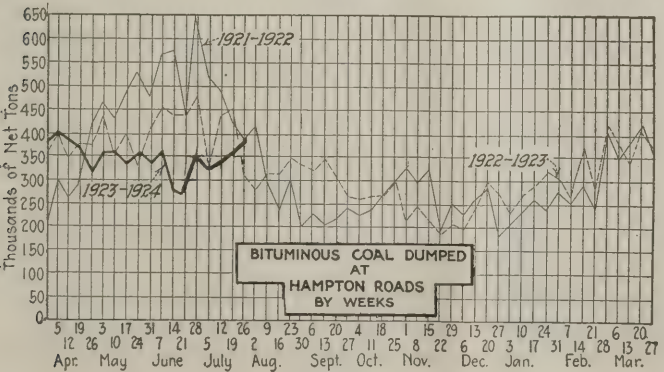 Thousands of Net Tons
650
600
550
500
450
400
350
300
250
200
150
100
50
0
1921-1922
1922-1923
1923-1924
BITUMINOUS COAL DUMPED
AT
HAMPTON ROADS
BY WEEKS
5 19 3 17 31 14 28 12 26 9 23 6 20 4 18 1 15 29 13 27 10 24 7 21 6 20
12 26 10 24 7 21 5 19 2 16 30 13 27 11 25 8 22 6 20 3 17 31 14 28 13 27
Apr. May June July Aug. Sept. Oct. Nov. Dec. Jan. Feb. Mar.